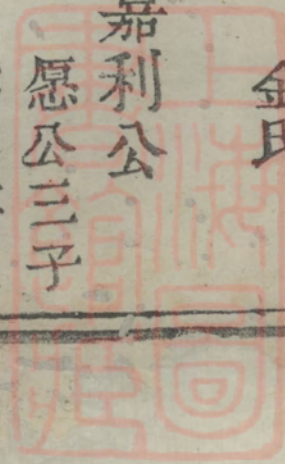 金氏
嘉利公
愿公三子
上海圖書館藏